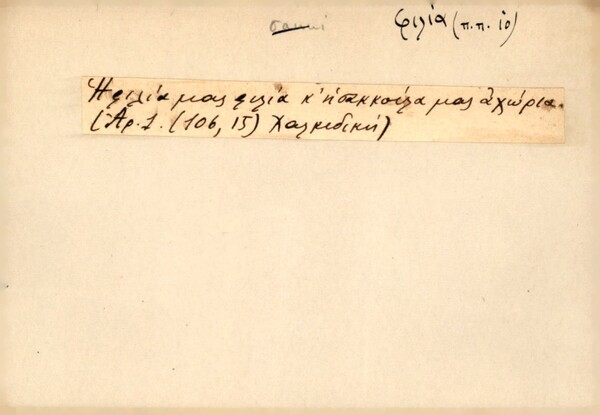 φιλία (π.π. 10)
Ἡ φιλία μας φιλία κ' ἡ σακκούλα μας ἀχώρια.
(Ἀρ. 1. (106, 15) Χαλκιδική)